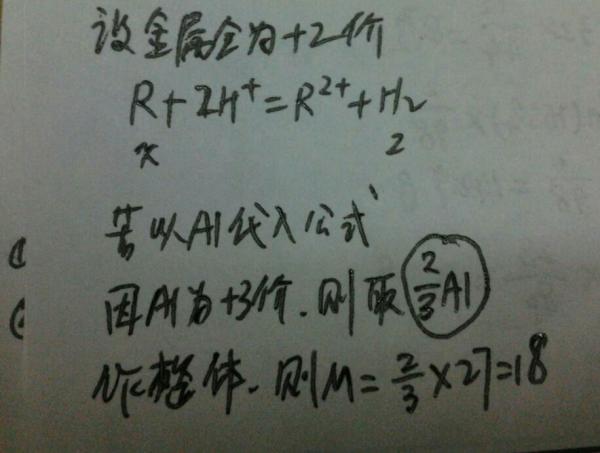 设金属全为+2价
R+2H⁺=R²⁺+H₂
x 2
若以Al代入公式
因Al为+3价.则取 2/3 Al
作整体.则M=2/3×27=18